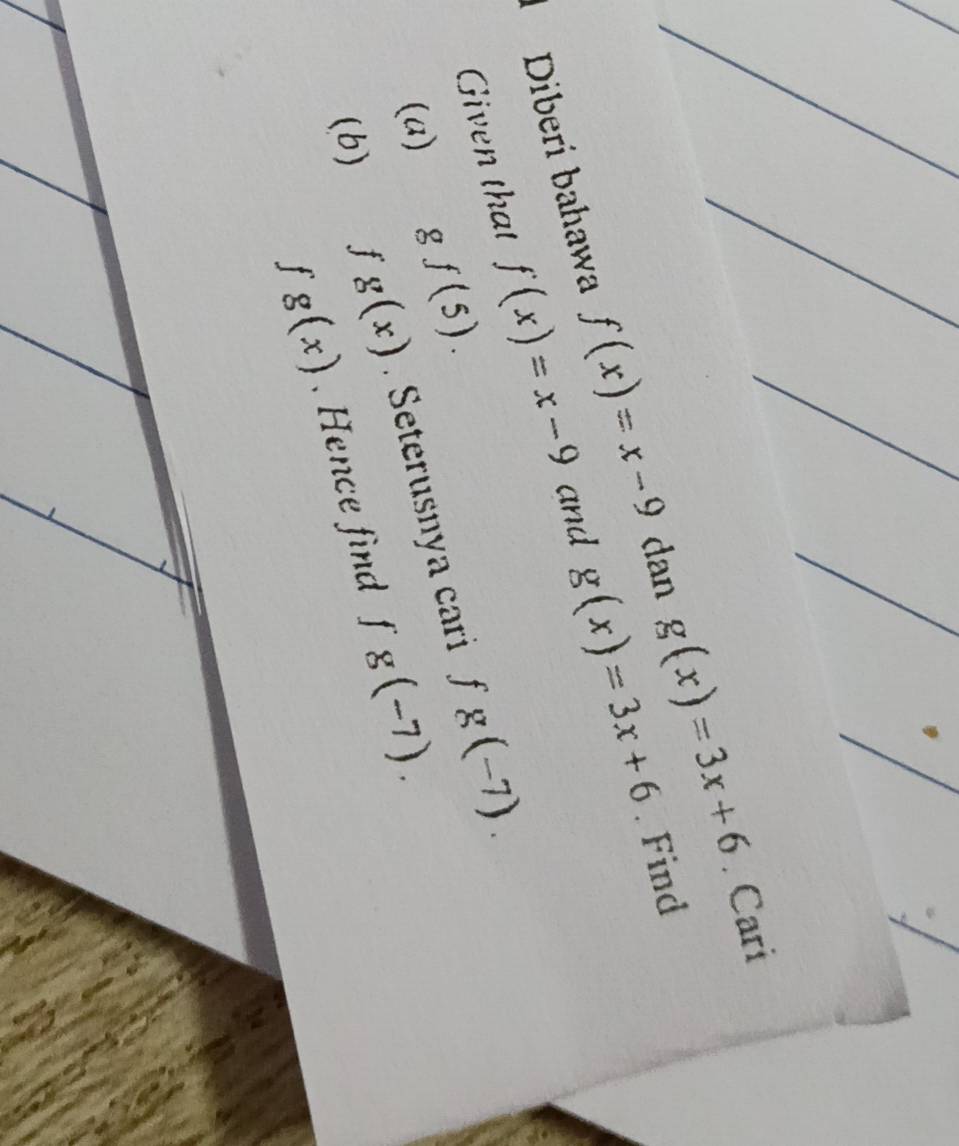 Diberi bahawa f(x) = x − 9 dan g(x) = 3x + 6. Cari
Given that f(x) = x − 9 and g(x) = 3x + 6. Find
(a) gf(5).
(b) fg(x). Seterusnya cari fg(−7).
fg(x). Hence find fg(−7).